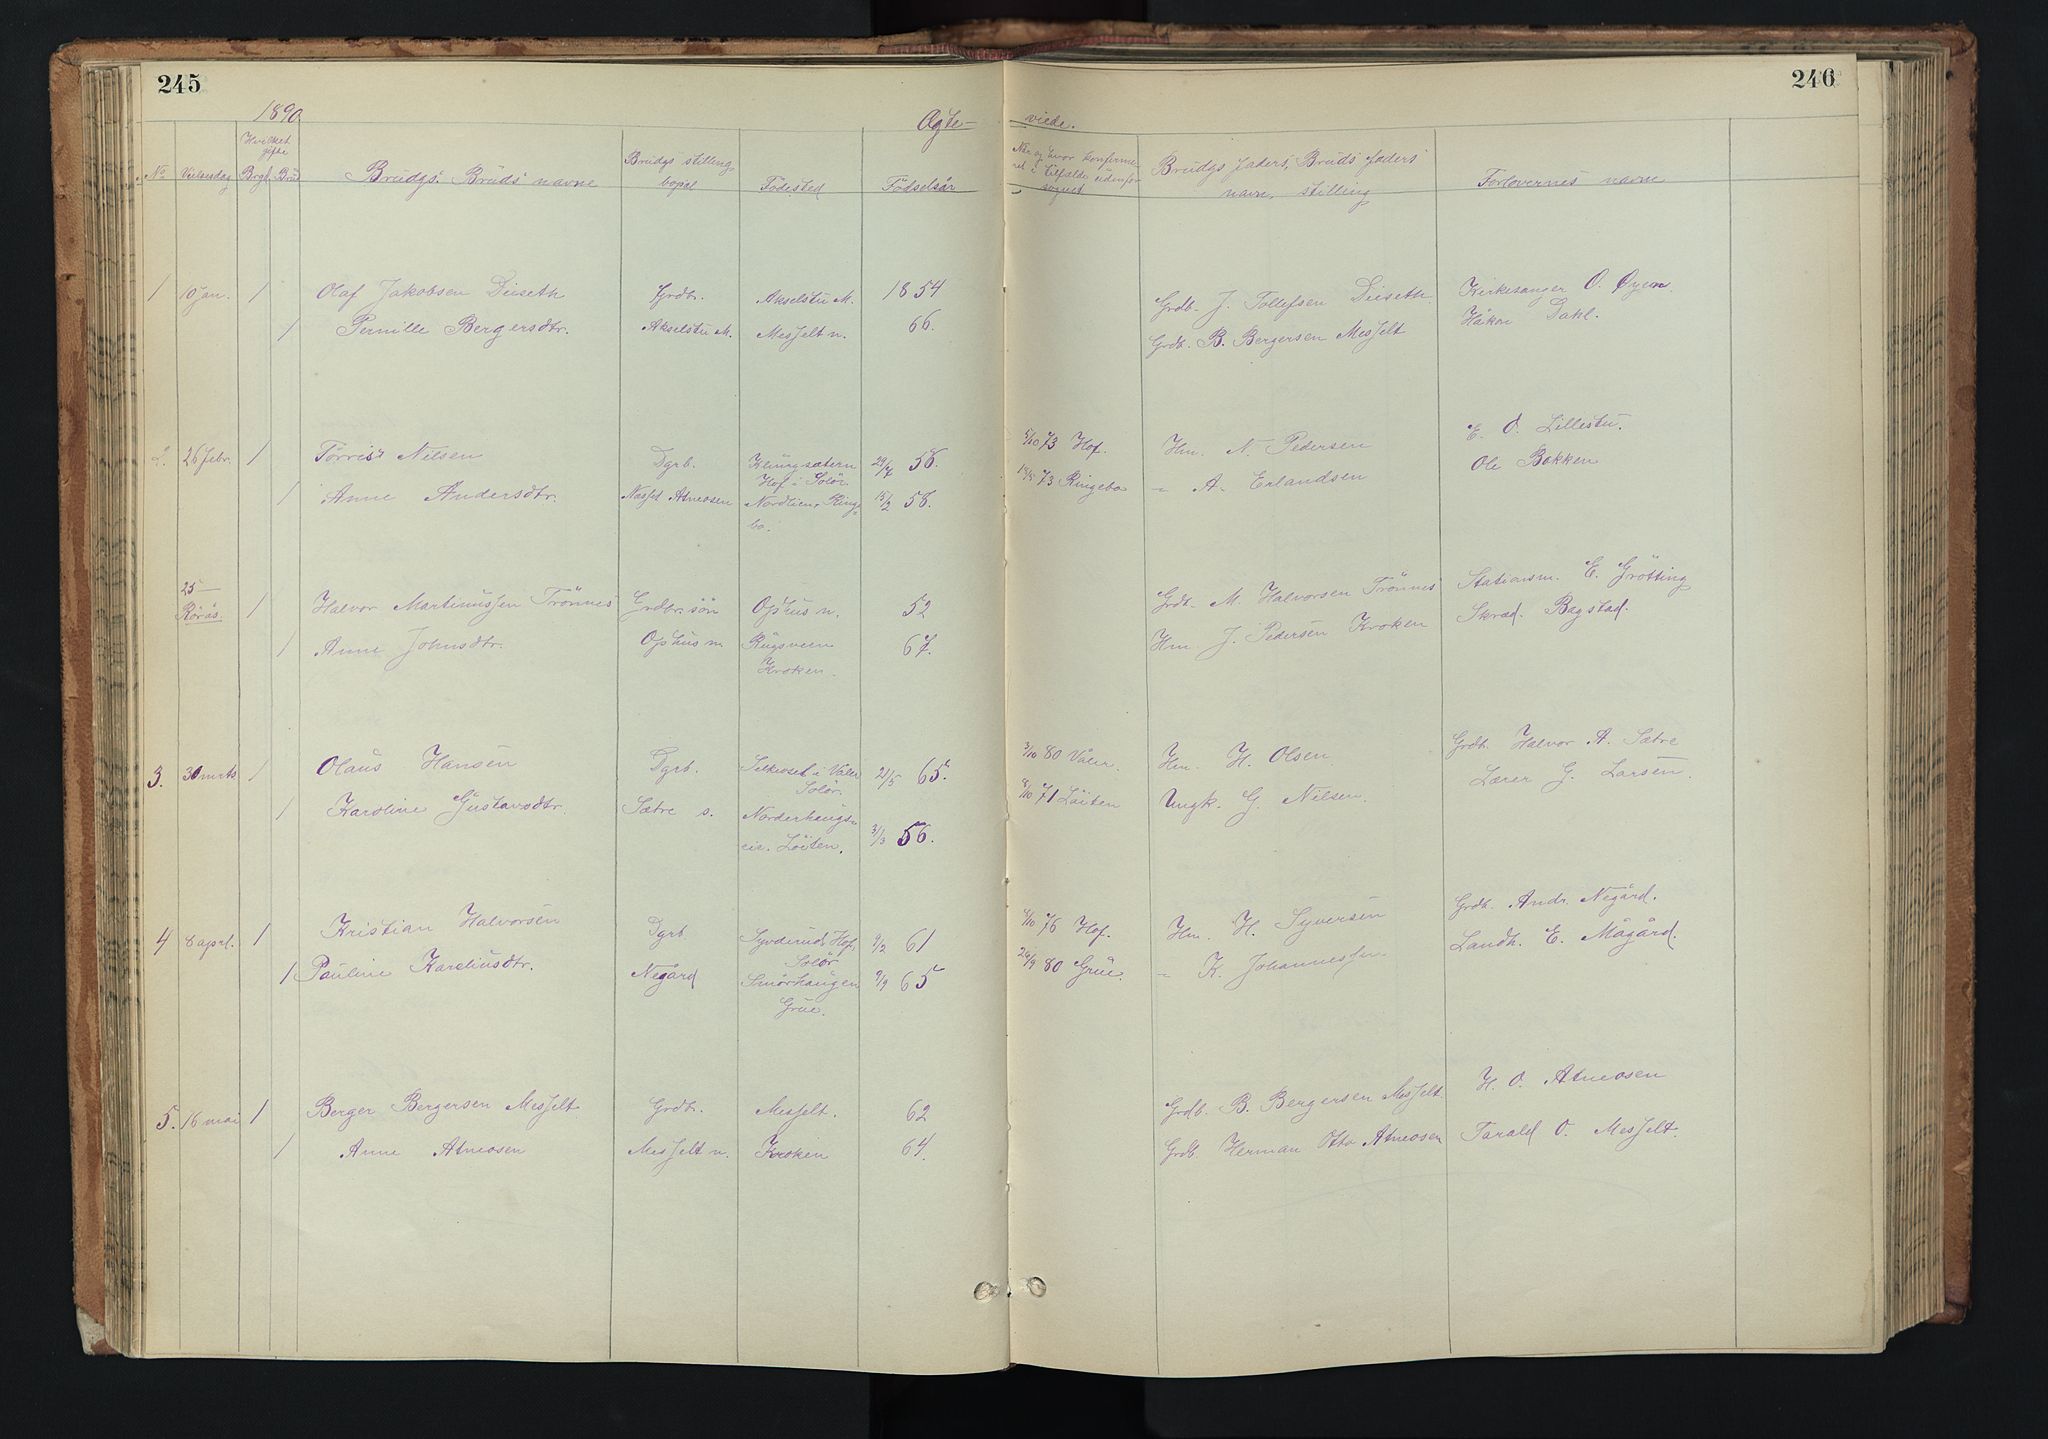 245
246
1890
Ægte-
viede.
No
Vielsesdag
Hvilket gifte
Brgl. Brud
Brudgs. Bruds navne
Brudgs stilling bopæl
Fødested
Fødselsår
Når og hvor konfirmeret i tilfælde udenfor sognet
Brudgs faders, Bruds faders navn, stilling
Forlovernes navne
1 10 jan. 1 Olaf Jakobsen Diiseth Grdbr. Akselstu M. 1854 Grdb. J. Tollefsen Diiseth. Kirkesanger O. Øyen.
1 Pernille Bergersdtr. Akselstu M. Messelt n. 66. Grdb. B. Bergersen Messelt Håkon Dahl.
2. 26 febr. 1 Tørris Nilsen Dgrb. Klungsætern 58. 5/10 73 Hof. Hm. N. Pedersen E. O. Lillestu.
Hof i Solør
1 Anne Andersdtr. Atneosen Nordlien, Ringe- 13/2 58. 73 Ringebo - A. Erlandsen Ole Bakken
bo.
25 -
Rörås. 1 Halvor Martinussen Trönnes Grdbr. sön Ophus n. 52 Grdb. M. Halvorsen Trönnes Stationsm. E. Grötting
1 Anne Johnsdtr. Ophus n. Rugsveen 67. Hm. J. Pedersen Kroken Skræd. Bagstad.
Kroken.
3. 30 mrts 1 Olaus Hansen Dgrb. i Våler 21/5 65. 3/10 80 Våler Hm. H. Olsen Grdb. Halvor A. Sætre
Solör.
1 Karoline Gustavsdtr. Sætre s. Norderhaugs- 3/3 56. 8/10 71 Löiten Ungk. G. Nilsen. Lærer G. Larsen.
eie. Löiten.
4 8 aprl. 1 Kristian Halvorsen Dgrb Syverud, Hof, 9/2 61 76 Hof. Hm. H. Syversen Grdb. Andr. Negård.
Solör
1 Pauline Kareliusdtr. Negård Smörhaugen 9/9 65 80 Grue. - K. Johannessen. Landh. E. Mågård.
Grue.
5. 16 mai 1 Berger Bergersen Messelt Grdb. Messelt. 62 Grdb. B. Bergersen Messelt H. O. Atneosen
1 Anne Atneosen Messelt n. Kroken 64. Grdb. Herman Otto Atneosen Tarald O. Messelt.